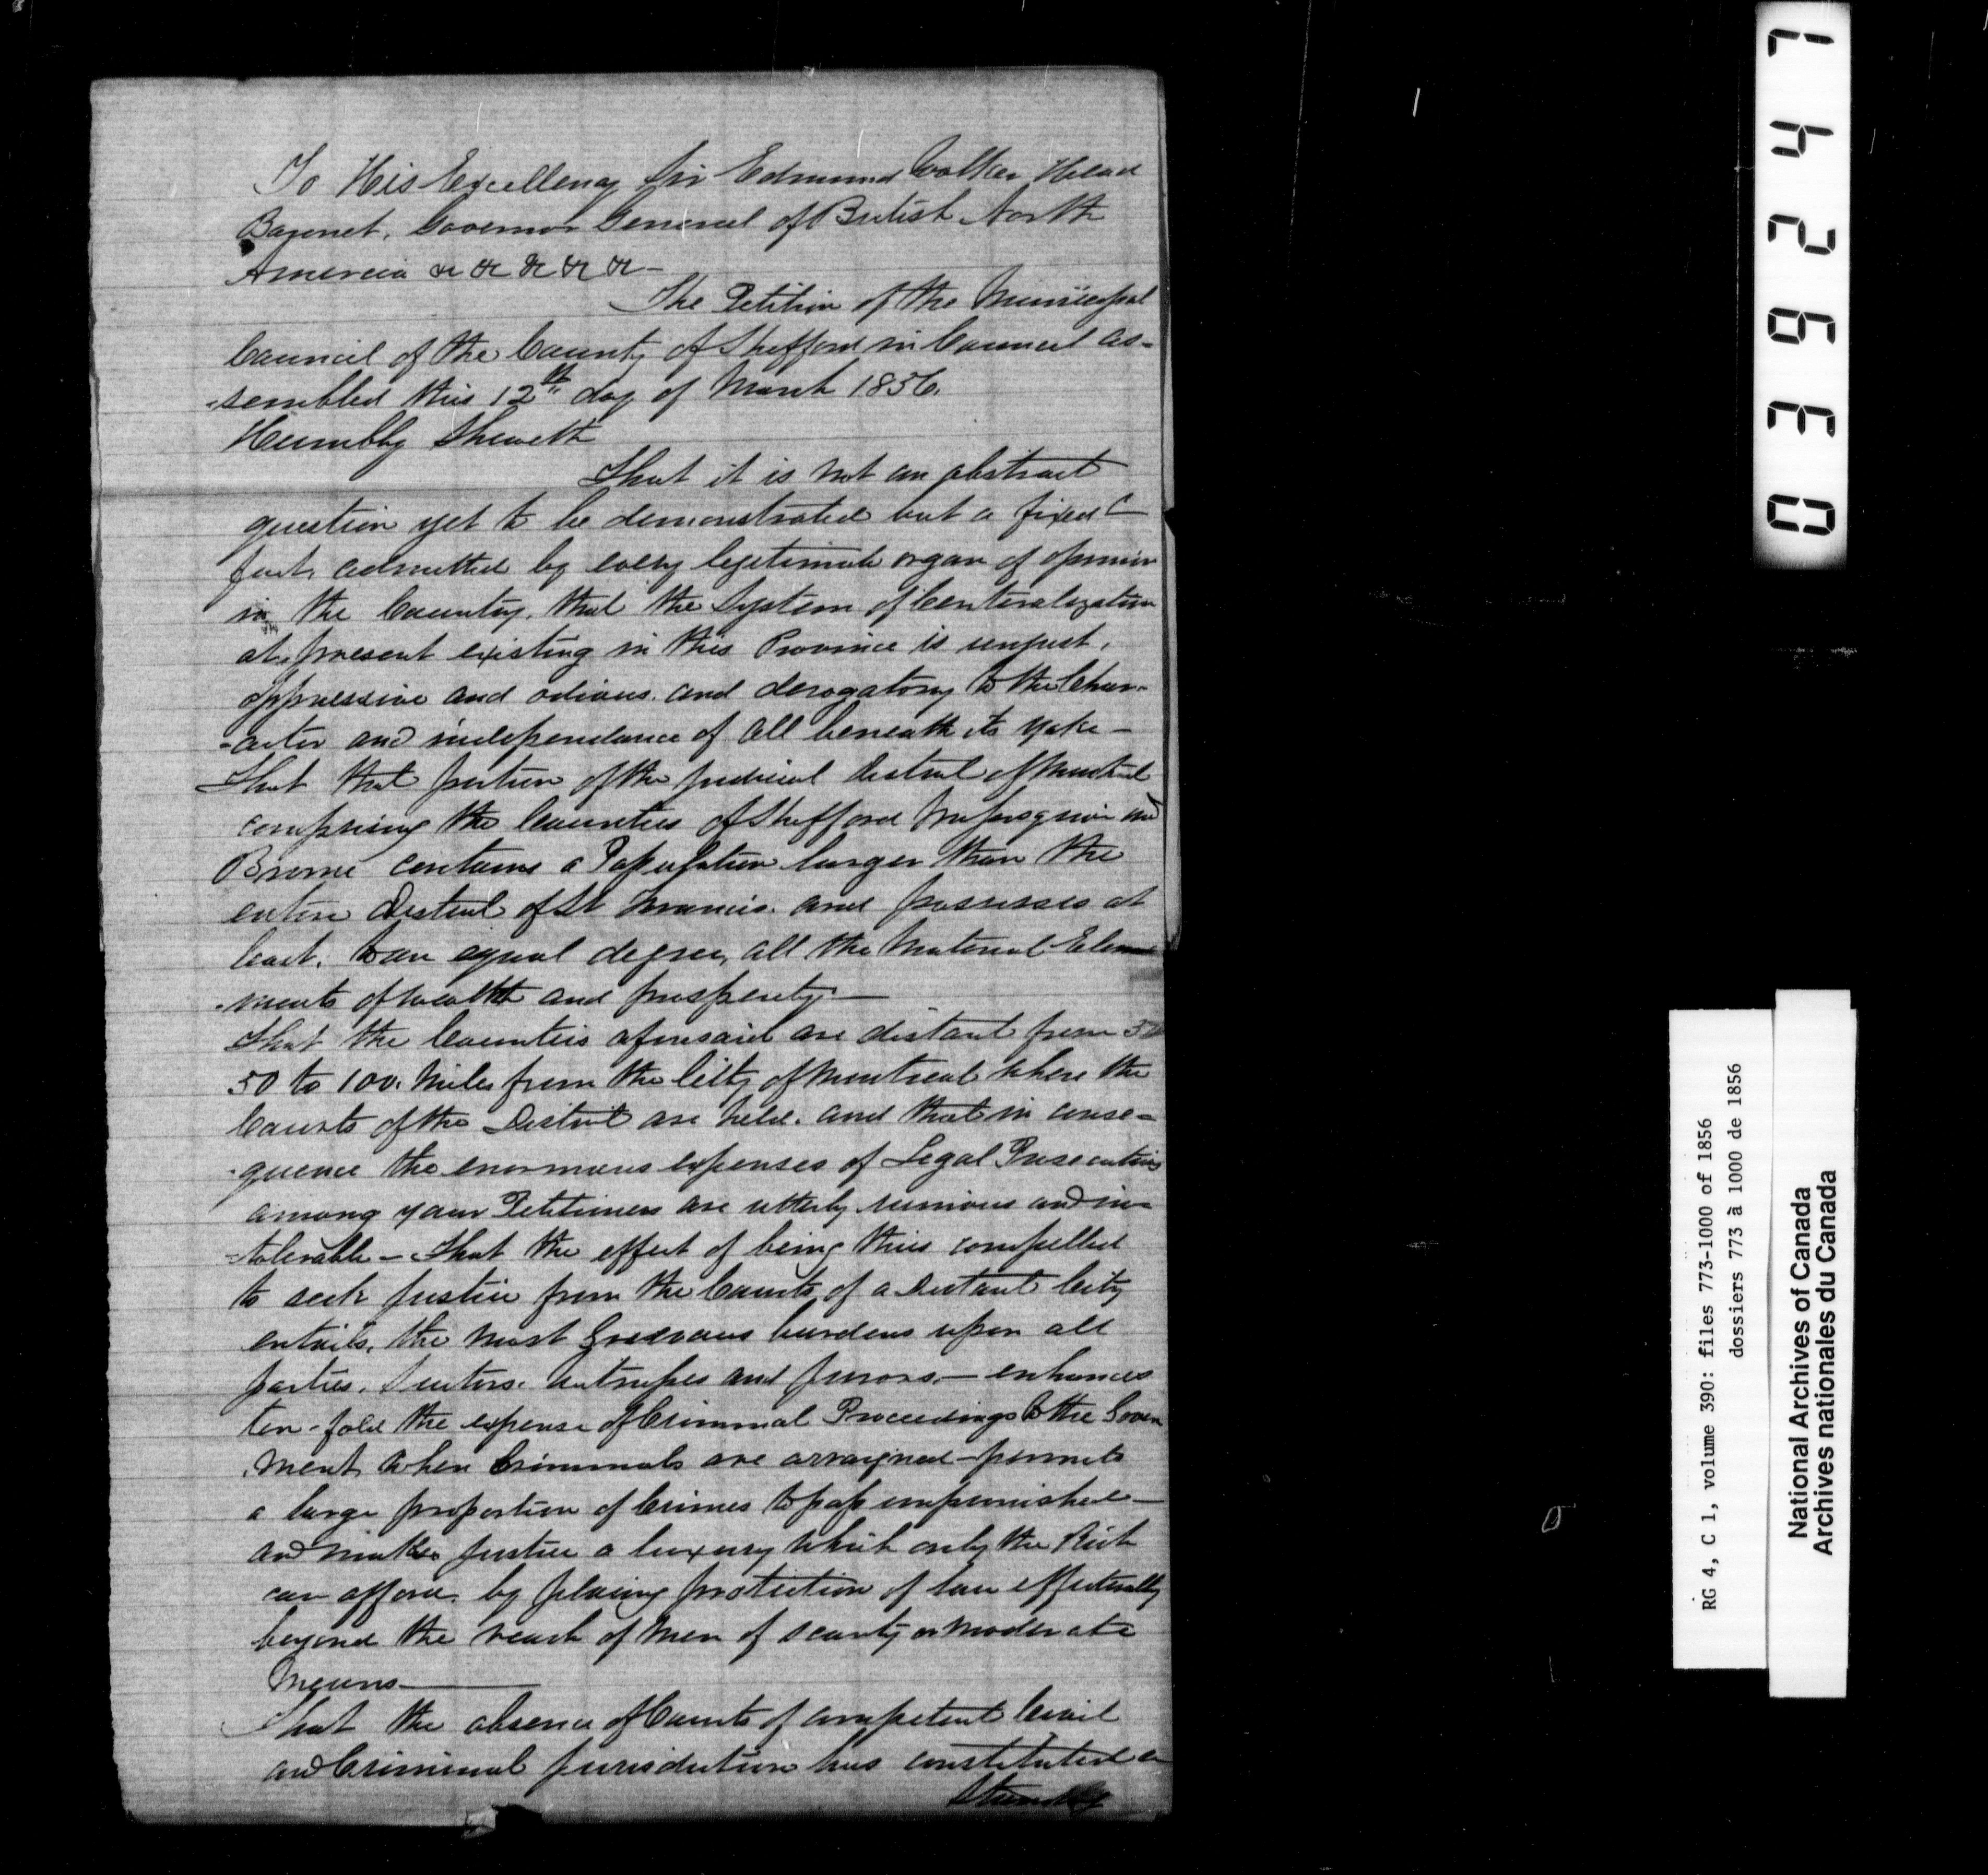 To His Excellency Sir Edmund Walker Head
Baronet, Governor General of British North
America &c &c &c &c &c –
The Petition of the Municipal
Council of the County of Shefford in Council as-
-sembled this 12th day of March 1856.
Humbly Sheweth
That it is not an abstract
question yet to be demonstrated but a fixed
fact, admitted by every legitimate organ of opinion
in the Country, that the System of Centralization
at present existing in this Province is unjust,
oppressive and odious, and derogatory to the Char-
-acter and independance of all beneath its yoke –
That that portion of the judicial District of Montreal
comprising the Counties of Shefford Missisquoi and
Brome contains a Population larger than the
entire District of St Francis. and possesses at
least, to an equal degree, all the Material Ele-
-ments of wealth and prosperity –
That the Counties aforesaid are distant from
50 to 100. Miles from the City of Montreal where the
Courts of the District are held. and that in conse=
-quence the enormous expenses of Legal Prosecutions
among your Petitioners are utterly ruinous and in=
-tolerable – That the effect of being thus compelled
to seek justice from the Courts of a distant City
entails, the most Grievous burdens upon all
parties, Suitors. witnesses and jurors. – enhances
ten-fold the expense of Criminal Proceedings to the Govern
-ment when Criminals are arraigned – permits
a large proportion of Crimes to pass unpunished –
and makes justice a luxury which only the Rich
can afford, by placing protection of law effectually
beyond the reach of Men of scanty or moderate
Means –
That the absence of Courts of competent Civil
and Criminal jurisdiction has constituted a
Standing
0 3 9 2 4 7
RG 4, C 1, volume 390: files 773-1000 of 1856
dossiers 773 à 1000 de 1856
National Archives of Canada
Archives nationales du Canada